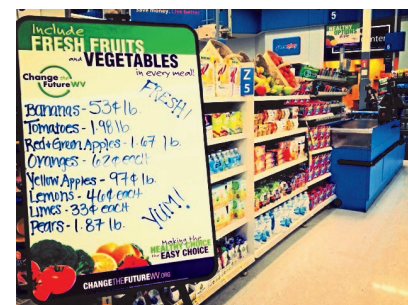 Include
FRESH FRUITS
and VEGETABLES
in every meal!
Change the
Future WV
FRESH!
Bananas - 53¢ lb.
Tomatoes - 1.98 lb
Red + Green Apples - 1.67 lb.
Oranges - 62¢ each
Yellow Apples - 97¢ lb.
Lemons - 46¢ each
Limes - 33¢ each
Pears - 1.87 lb.
YUM!
Making the
HEALTHY CHOICE
the EASY CHOICE
CHANGETHEFUTUREWV.ORG
Z
5
5
HEALTHY
OPTIONS